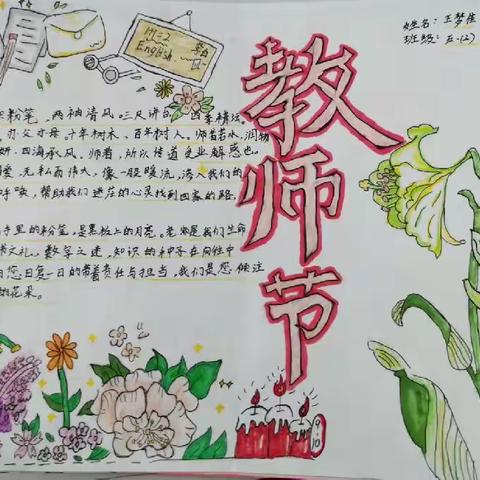 姓名：王梦佳
班级：五.(2)
1+1=2
English
教师节
粉笔，两袖清风。三尺讲台，四季耕耘。
亦父亦母，十年树木，百年树人。师者若水，润物
四海承风。师者，所以传道受业解惑也。
爱，无私而伟大，像一股暖流，渗入我们的
呼唤，帮助我们迷茫的心灵找到回家的路。
手里的粉笔，是黑板上的月亮。老师是我们生命
数字之迷，知识的种子在向往中
您日复一日的带着责任与担当，我们是您倾注
的花朵。
9.10